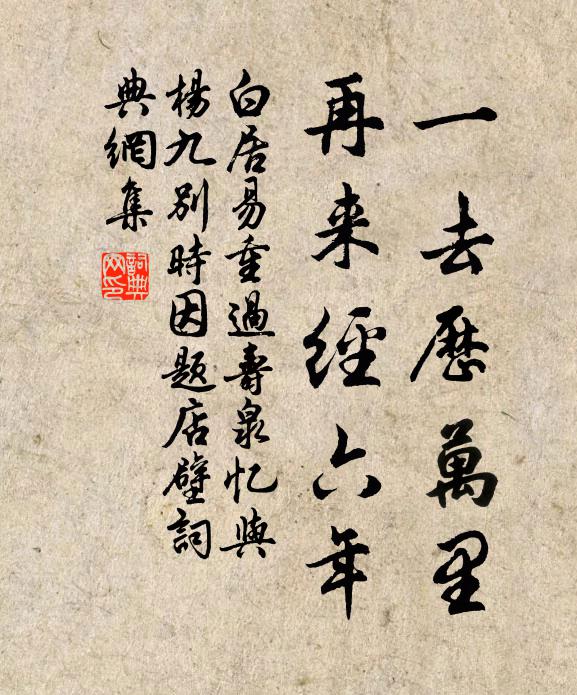 一去歷萬里
再来經六年
白居易重過壽泉忆與
楊九別時因题店壁詞
典網集
詞典网印